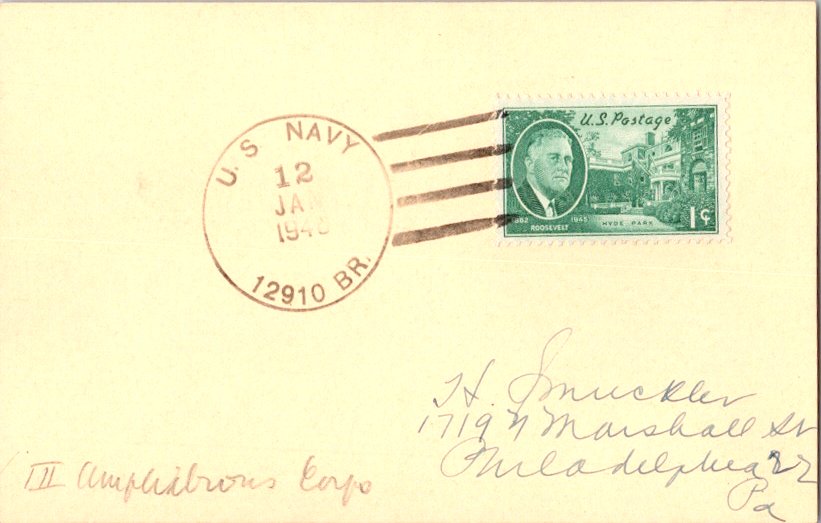 U. S. NAVY
12
JAN
1946
12910 BR.
U.S. Postage
1882 1945
ROOSEVELT
HYDE PARK
1¢
H. Smuckler
1719 N Marshall St
Philadelphia 22
Pa
III Amphibious Corps